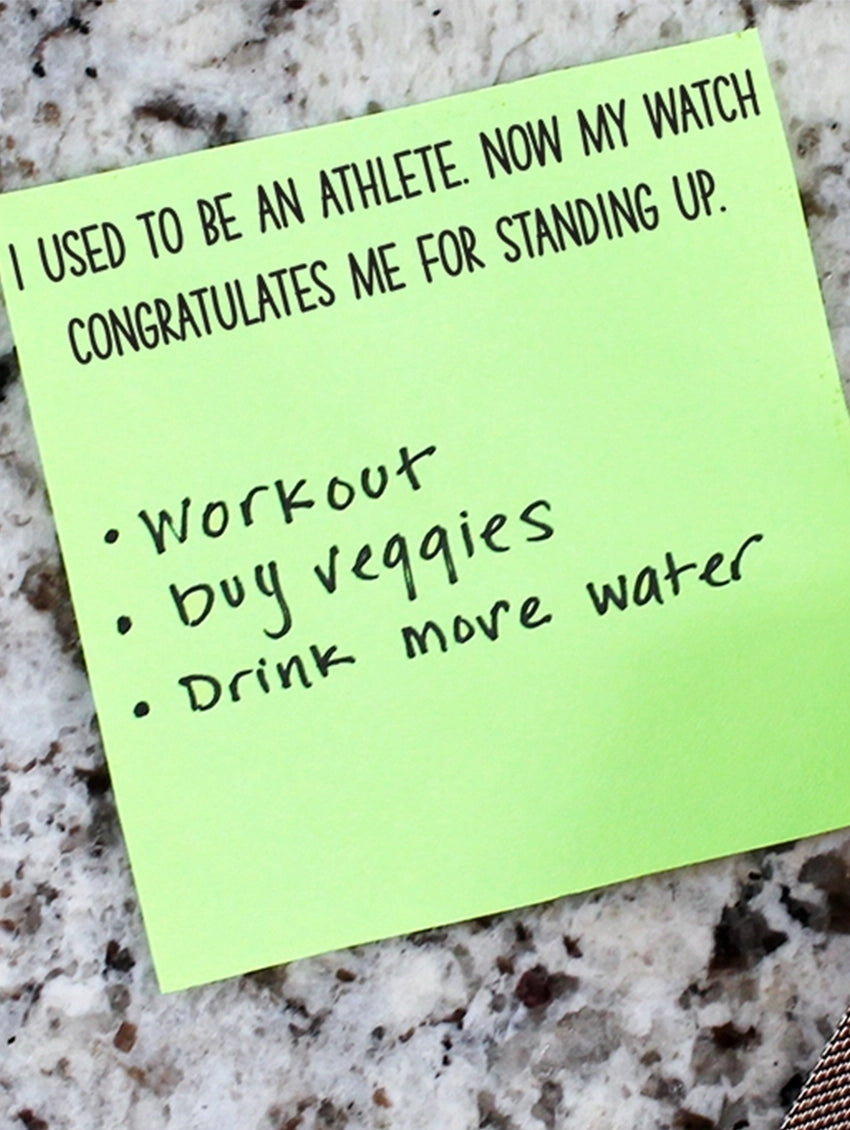 I USED TO BE AN ATHLETE. NOW MY WATCH
CONGRATULATES ME FOR STANDING UP.
• Workout
• buy veggies
• Drink more water